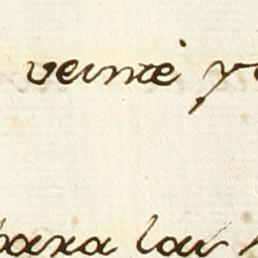 veinte y
para las